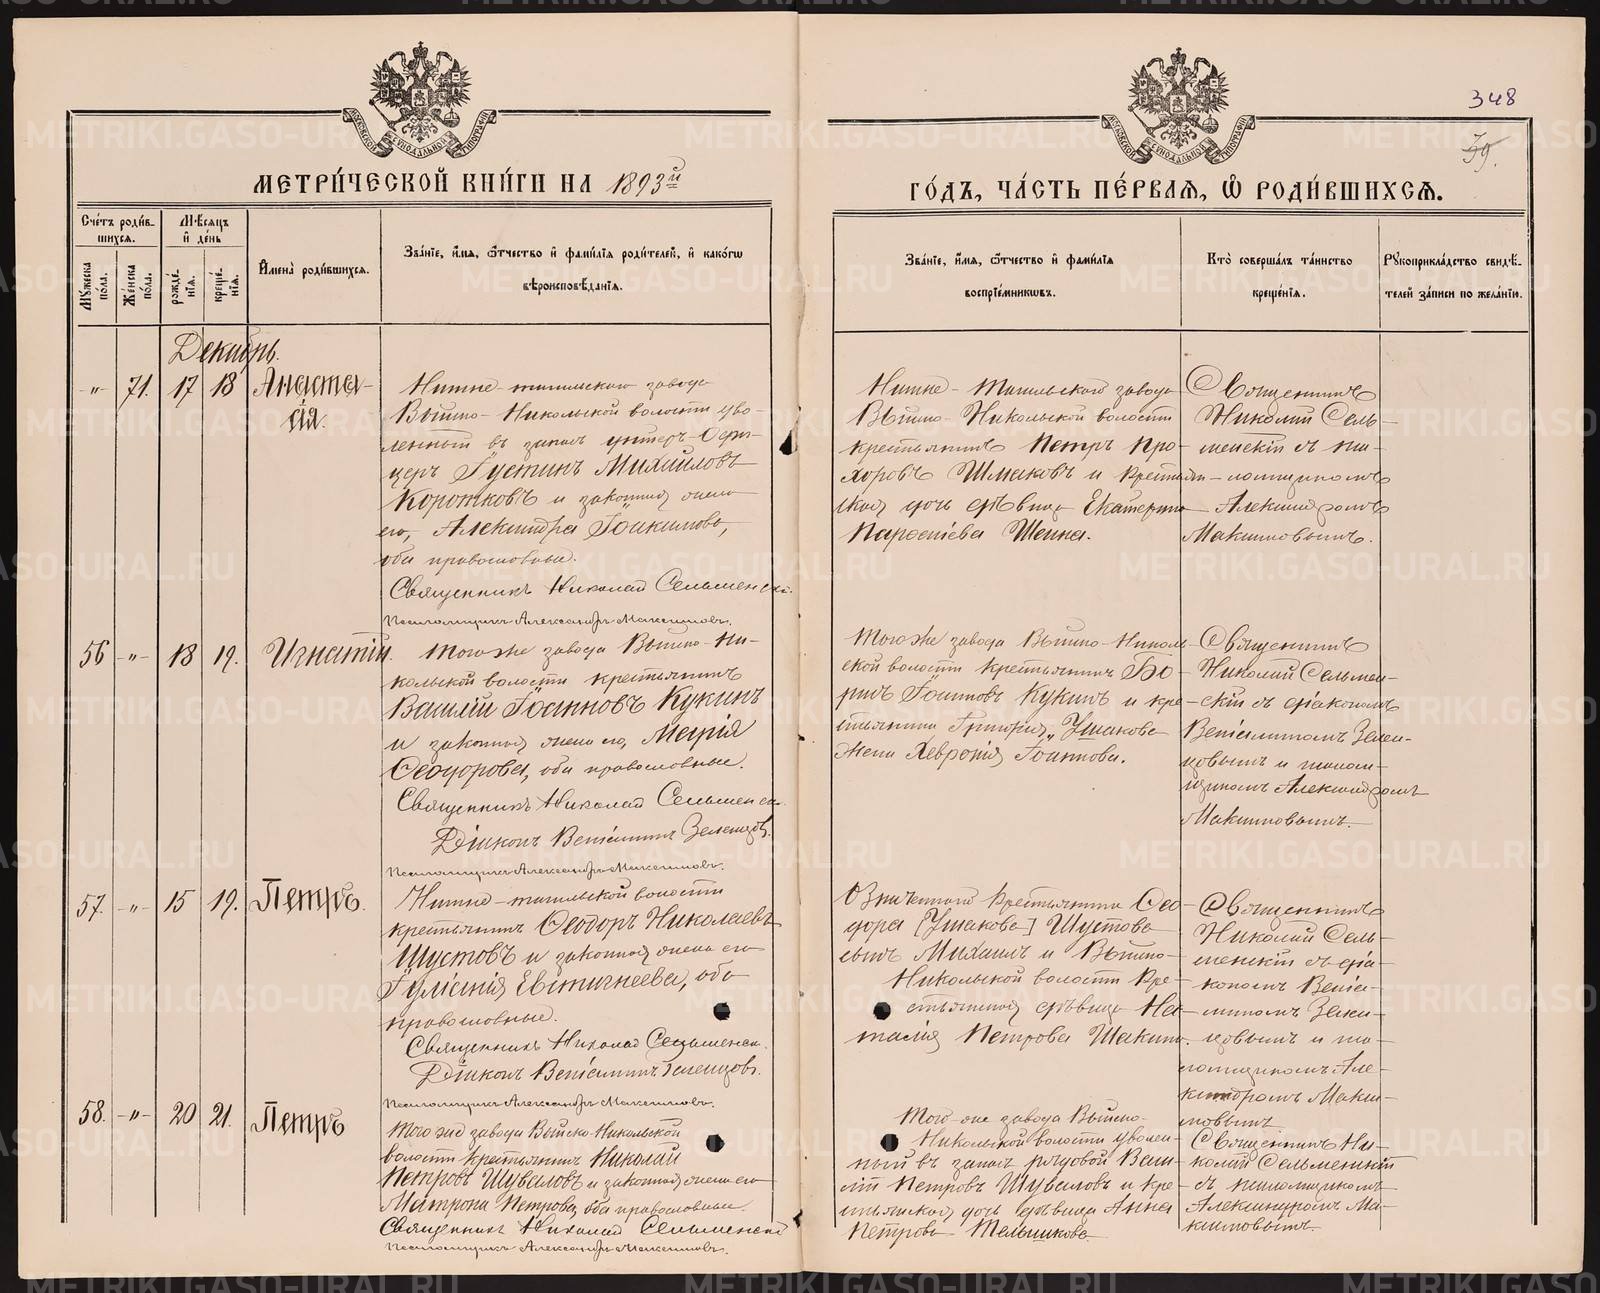 348
79.
МОСКОВСКОЙ СУНОДАЛЬНОЙ ТИПОГРАФІИ
МОСКОВСКОЙ СУНОДАЛЬНОЙ ТИПОГРАФІИ
МЕТРИ́ЧЕСКОЙ КНИ́ГИ НА 1893й
ГО́ДЪ, ЧА́СТЬ ПЕ́РВАЯ, Ѡ҆ РОДИ́ВШИХСЯ.
Сче́тъ роди́в-
шихся.
Мꙋ́жеска по́ла.
Же́нска по́ла.
Мѣ́сяцъ
и҆ де́нь
рожде́нїя.
креще́нїя.
И҆мена̀ роди́вшихся.
Зва́нїе, и҆́мя, ѻ҆́тчество и҆ фами́лїя роди́телей, и҆ како́гѡ
вѣроисповѣ́данїя.
Зва́нїе, и҆́мя, ѻ҆́тчество и҆ фами́лїя
воспрїе́мникѡвъ.
Кто̀ соверша́лъ та́инство
креще́нїя.
Рꙋкоприкла́дство свидѣ́-
телей за́писи по жела́нїю.
Декабрь.
-"- 71. 17 18 Анаста-
сія.
Нижне-тагильскаго завода
Выйско-Никольской волости уво-
ленный въ запасъ унтеръ-офи-
церъ Густинъ Михайловъ
Коротковъ и законная жена
его, Александра Іоакимова,
оба православные.
Священникъ Николай Сельменскій.
Псаломщикъ Александръ Максимовъ.
Нижне-Тагильскаго завода
Выйско-Никольской волости
крестьянинъ Петръ Про-
хоровъ Шмаковъ и крестьян-
ская дочь дѣвица Екатерина
Парѳеніева Шеина.
Священникъ
Николай Сель-
менскій съ пса-
ломщикомъ
Александромъ
Максимовымъ.
56 -"- 18 19. Игнатій.
Того же завода Выйско-Ни-
кольской волости крестьянинъ
Василій Іоанновъ Кукинъ
и законная жена его, Марія
Ѳеодорова, оба православные.
Священникъ Николай Сельменскій.
Діаконъ Веніаминъ Зеленцовъ.
Псаломщикъ Александръ Максимовъ.
Того же завода Выйско-Николь-
ской волости крестьянинъ Бо-
рисъ Іоанновъ Кукинъ и кре-
стьянина Григорія Ушакова
жена Хевронія Іоаннова.
Священникъ
Николай Сельмен-
скій съ діакономъ
Веніаминомъ Зелен-
цовымъ и псалом-
щикомъ Александромъ
Максимовымъ.
57. -"- 15 19. Петръ.
Нижне-тагильской волости
крестьянинъ Ѳеодоръ Николаевъ
Шустовъ и законная жена его
Іуліанія Евстигнеева, оба
православные.
Священникъ Николай Сельменскій.
Діаконъ Веніаминъ Зеленцовъ.
Псаломщикъ Александръ Максимовъ.
Означеннаго крестьянина Ѳео-
дора [Ушакова] Шустова
сынъ Михаилъ и Выйско-
Никольской волости кре-
стьянская дѣвица На-
талія Петрова Шакина.
Священникъ
Николай Сель-
менскій съ діа-
кономъ Веніа-
миномъ Зелен-
цовымъ и пса-
ломщикомъ Але-
ксандромъ Макси-
мовымъ
58. -"- 20 21. Петръ
Того же завода Выйско-Никольской
волости крестьянинъ Николай
Петровъ Шуваловъ и законная жена его
Матрона Петрова, оба православные.
Священникъ Николай Сельменскій
Псаломщикъ Александръ Максимовъ.
Того-же завода Выйско-
Никольской волости уволен-
ный въ запасъ рядовой Васи-
лій Петровъ Шуваловъ и кре-
стьянская дочь дѣвица Анна
Петрова Мельшикова.
Священникъ Ни-
колай Сельменскій
съ псаломщикомъ
Александромъ Ма-
ксимовымъ.
METRIKI.GASO-URAL.RU